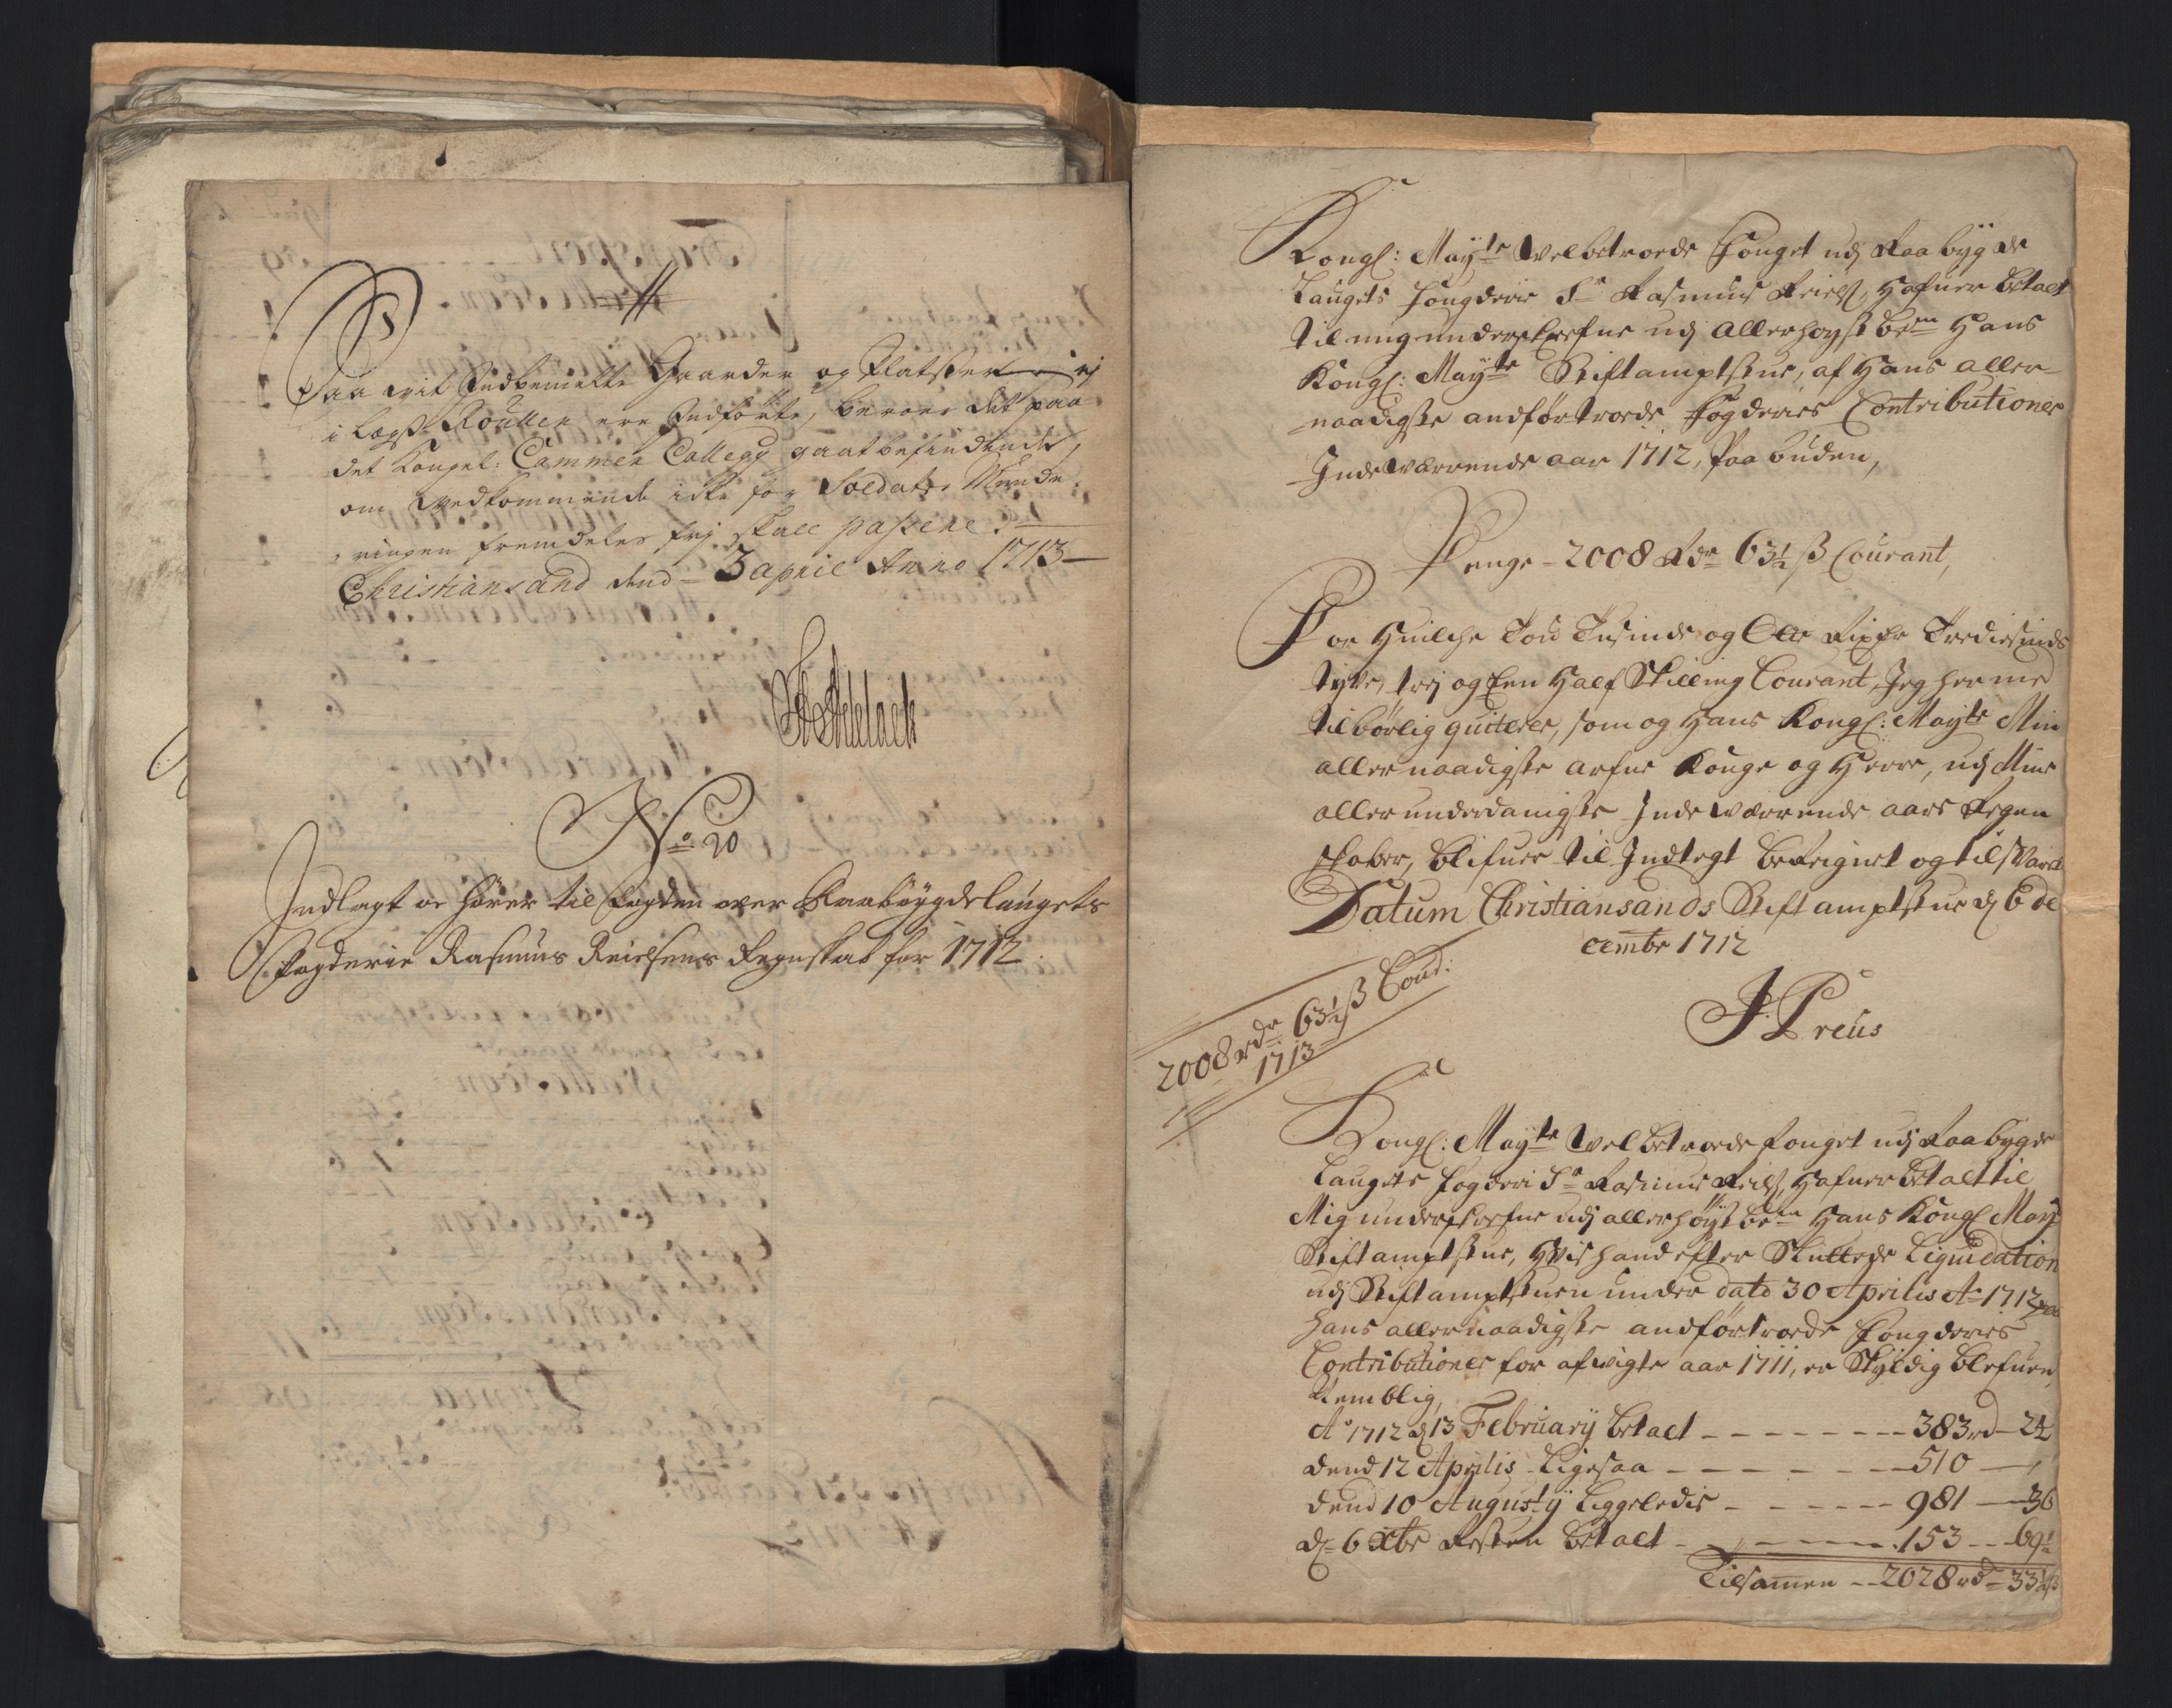 Saa vit Indbemelte Gaarder og Platzer ej
i Legs Roullen ere Indførte, beroer det paa
det Kongel: Cammer Collegij gaatbefindende,
om vedkommende icke for Soldater Munde-
ringen fremdeles frj skall passere.
Christiansand dend 3 april Anno 1713
No 20
Indlagt oc hører til Fogden over Raabøygdelaugets
Fogderie Rasmus Reiersens Regnskab for 1712
Kongl: Mayts Velbetroede Fouget udj Raabygde
Laugets fougderie Sr Rasmus Reiers, Hafuer betalt
til mig underskrefne udj Allerhøyst bem Hans
Kongl: Mayts Stiftamptstue, af Hans aller-
naadigste andførtroede Fogderies Contributioner
Indeværrende aar 1712, Paabuden,
Penge - 2008 Rdr 63½ ß Courant,
For Huilche Tou Tusinde og Otte Rixdr Trediesinds
tyve, trej og Een Half Skilling Courant, Jeg hermed
tilbørlig quiterer, som og Hans Kongl: Mayts Min
allernaadigste arfue Konge og Herre, udj Mine
allerunderdanigste Indeværrende aars Regen
skaber, blifuer til Indtegt bereignet og tilsvaret
Datum Christiansands Stiftamptstue dj 6 de
cembr 1712
2008 rdr 63½ ß Cour:
1713
J. Preus
Kongl: Mayts Velbetroede fouget udj Raabygde
Laugets fogderi Sr Rasmus Reiers, Hafuer betalt til
Mig underskrefne udj allerhøyst bem Hans Kongl May
Stiftamptstue, Hvis hand efter Sluttede Liquidation
udj Stiftamptstuen under dato 30 Aprilis Ao 1712 paa
Hans allernaadigste andførtroede Fougderies
Contributioner for afvigte aar 1711, er Skyldig blefuen
Nemblig,
Ao 1712 d 13 February betalt - - - 383 rd - 24
dend 12 Aprilis Ligesaa - - - 510 -
dend 10 Augusty Liggeledis - - - 981 - 36
dj 6 Xbr Resten betalt - - - 153 - - 69½
Tilsamen - - 2028 rd - 33½ ß